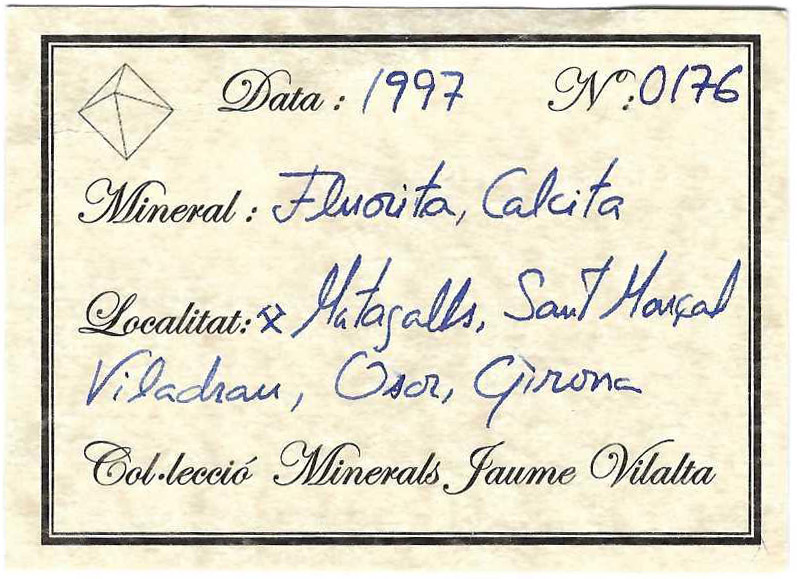 Data: 1997 Nº: 0176
Mineral: Fluorita, Calcita
Localitat: ⚒ Matagalls, Sant Marçal
Viladrau, Osor, Girona
Col·lecció Minerals Jaume Vilalta